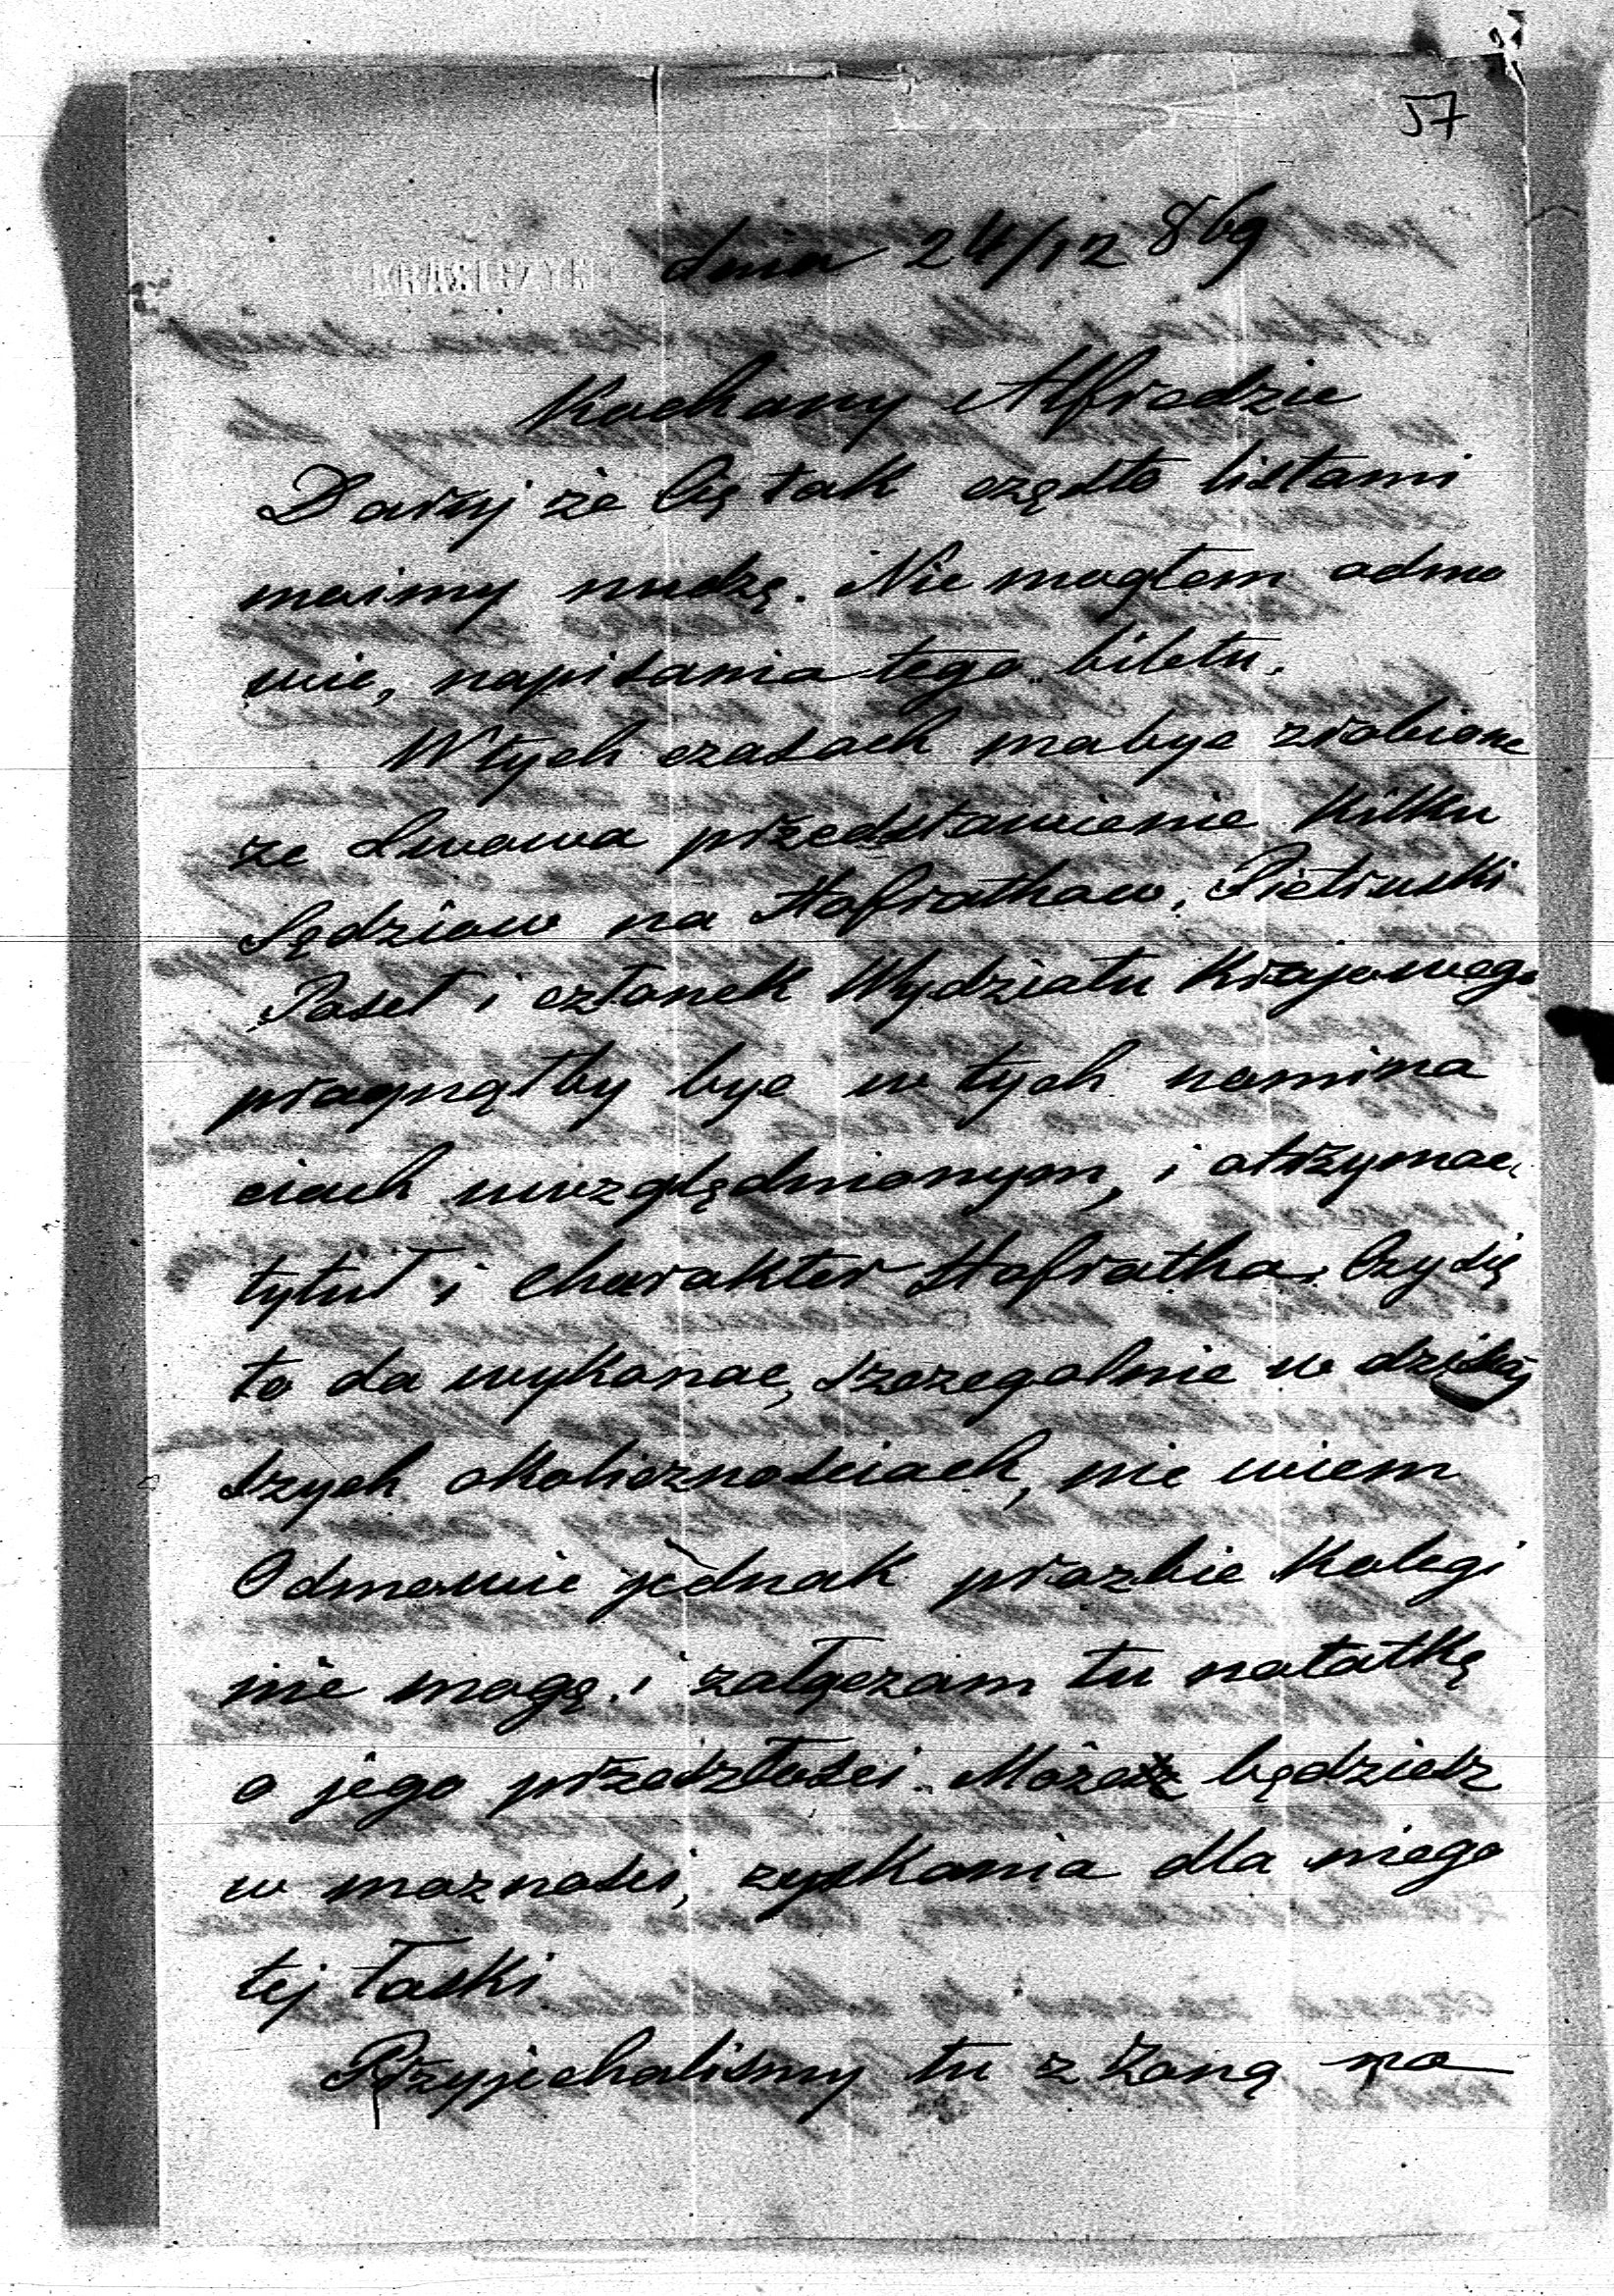 57
KRASICZYN
dnia 24/12 869
Kochany Alfredzie
Daruj że Cię tak często listami
moimy nudzę. Nie mogłem odmo
wic, napisania tego biletu.
W tych czasach ma byc zrobione
ze Lwowa przedstawienie Kilku
Sędziow na Hofrathow, Pietruski
Poseł i członek Wydziału Krajowego
pragnąłby byc w tych nomina
ciach uwzględnionym, i otrzymac
tytuł i charakter Hofratha. Czy się
to da wykonac, szczegolnie w dzisiej
szych okolicznosciach, nie wiem
Odmowic jednak prozbie Kolegi
nie mogę i załączam tu notatkę
o jego przeszłosci. Może będziesz
w moznosci, zyskania dla niego
tej łaski
Przyjechalismy tu z Zoną na